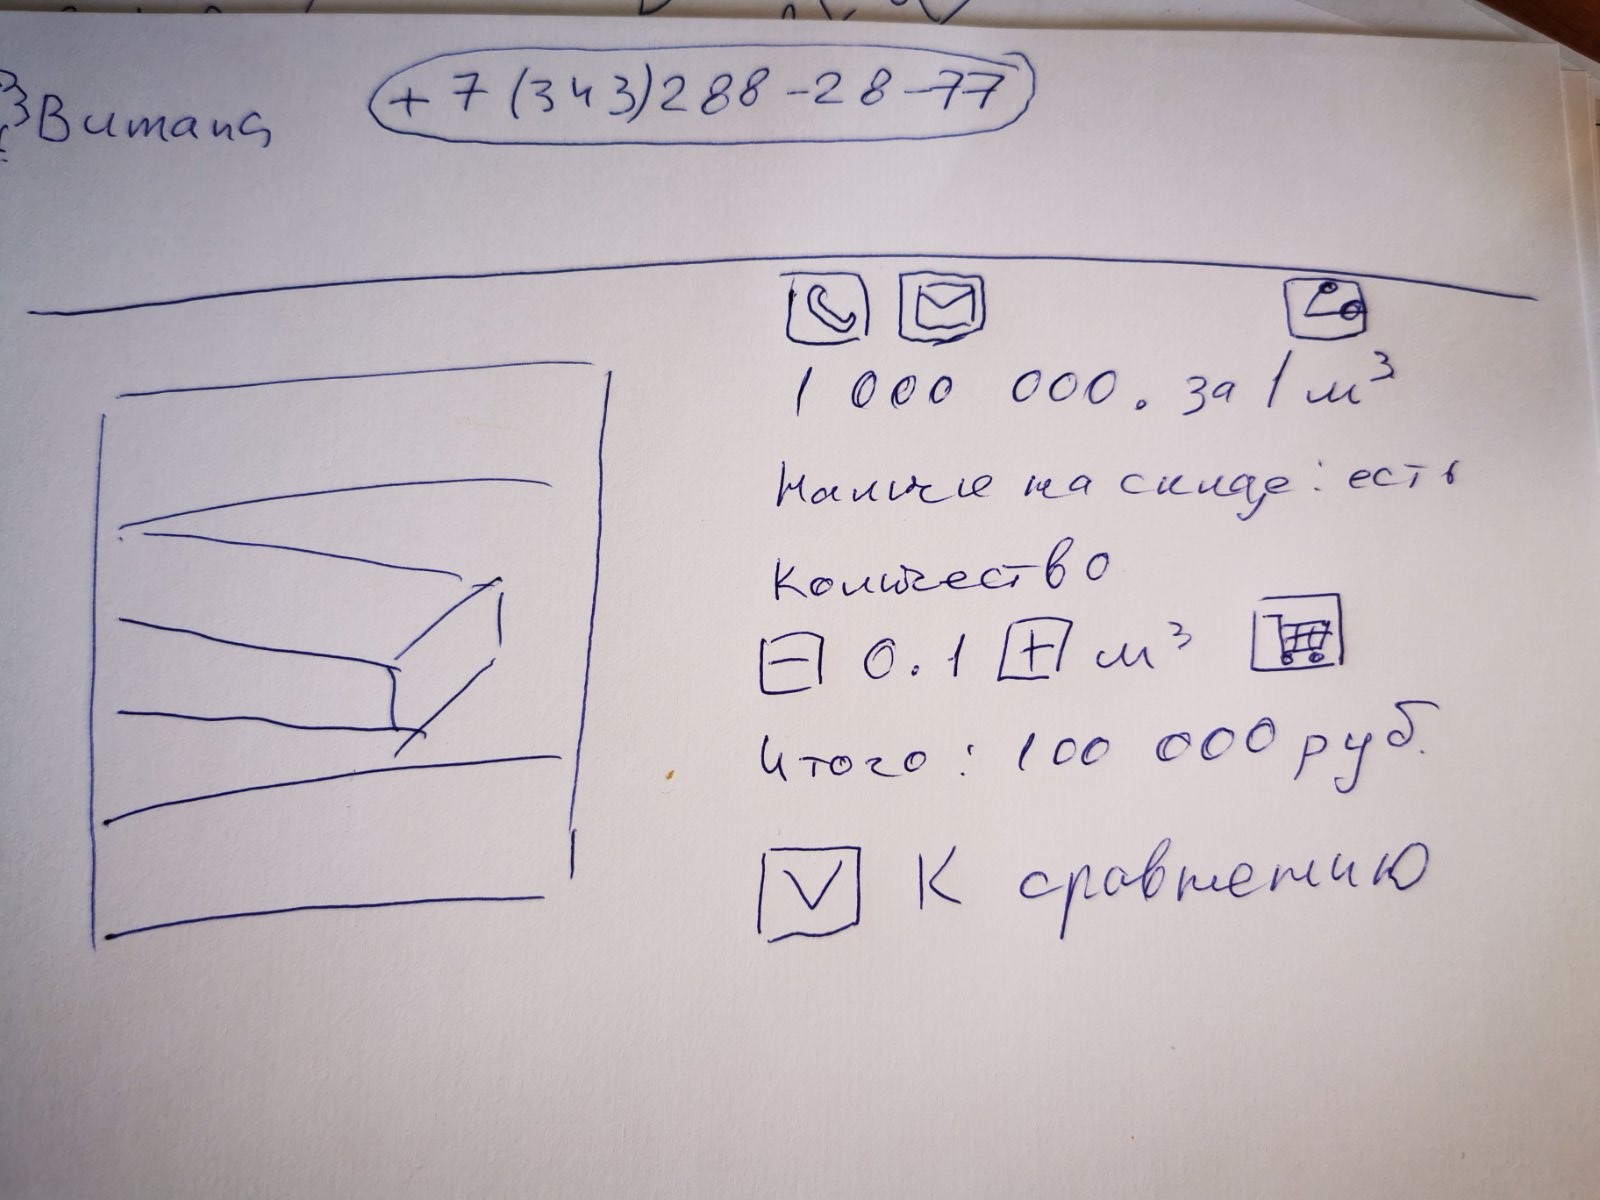 Витана +7(343)288-28-77
1 000 000. за 1 м³
Наличие на складе: есть
Количество
- 0.1 + м³
Итого: 100 000 руб.
V К сравнению